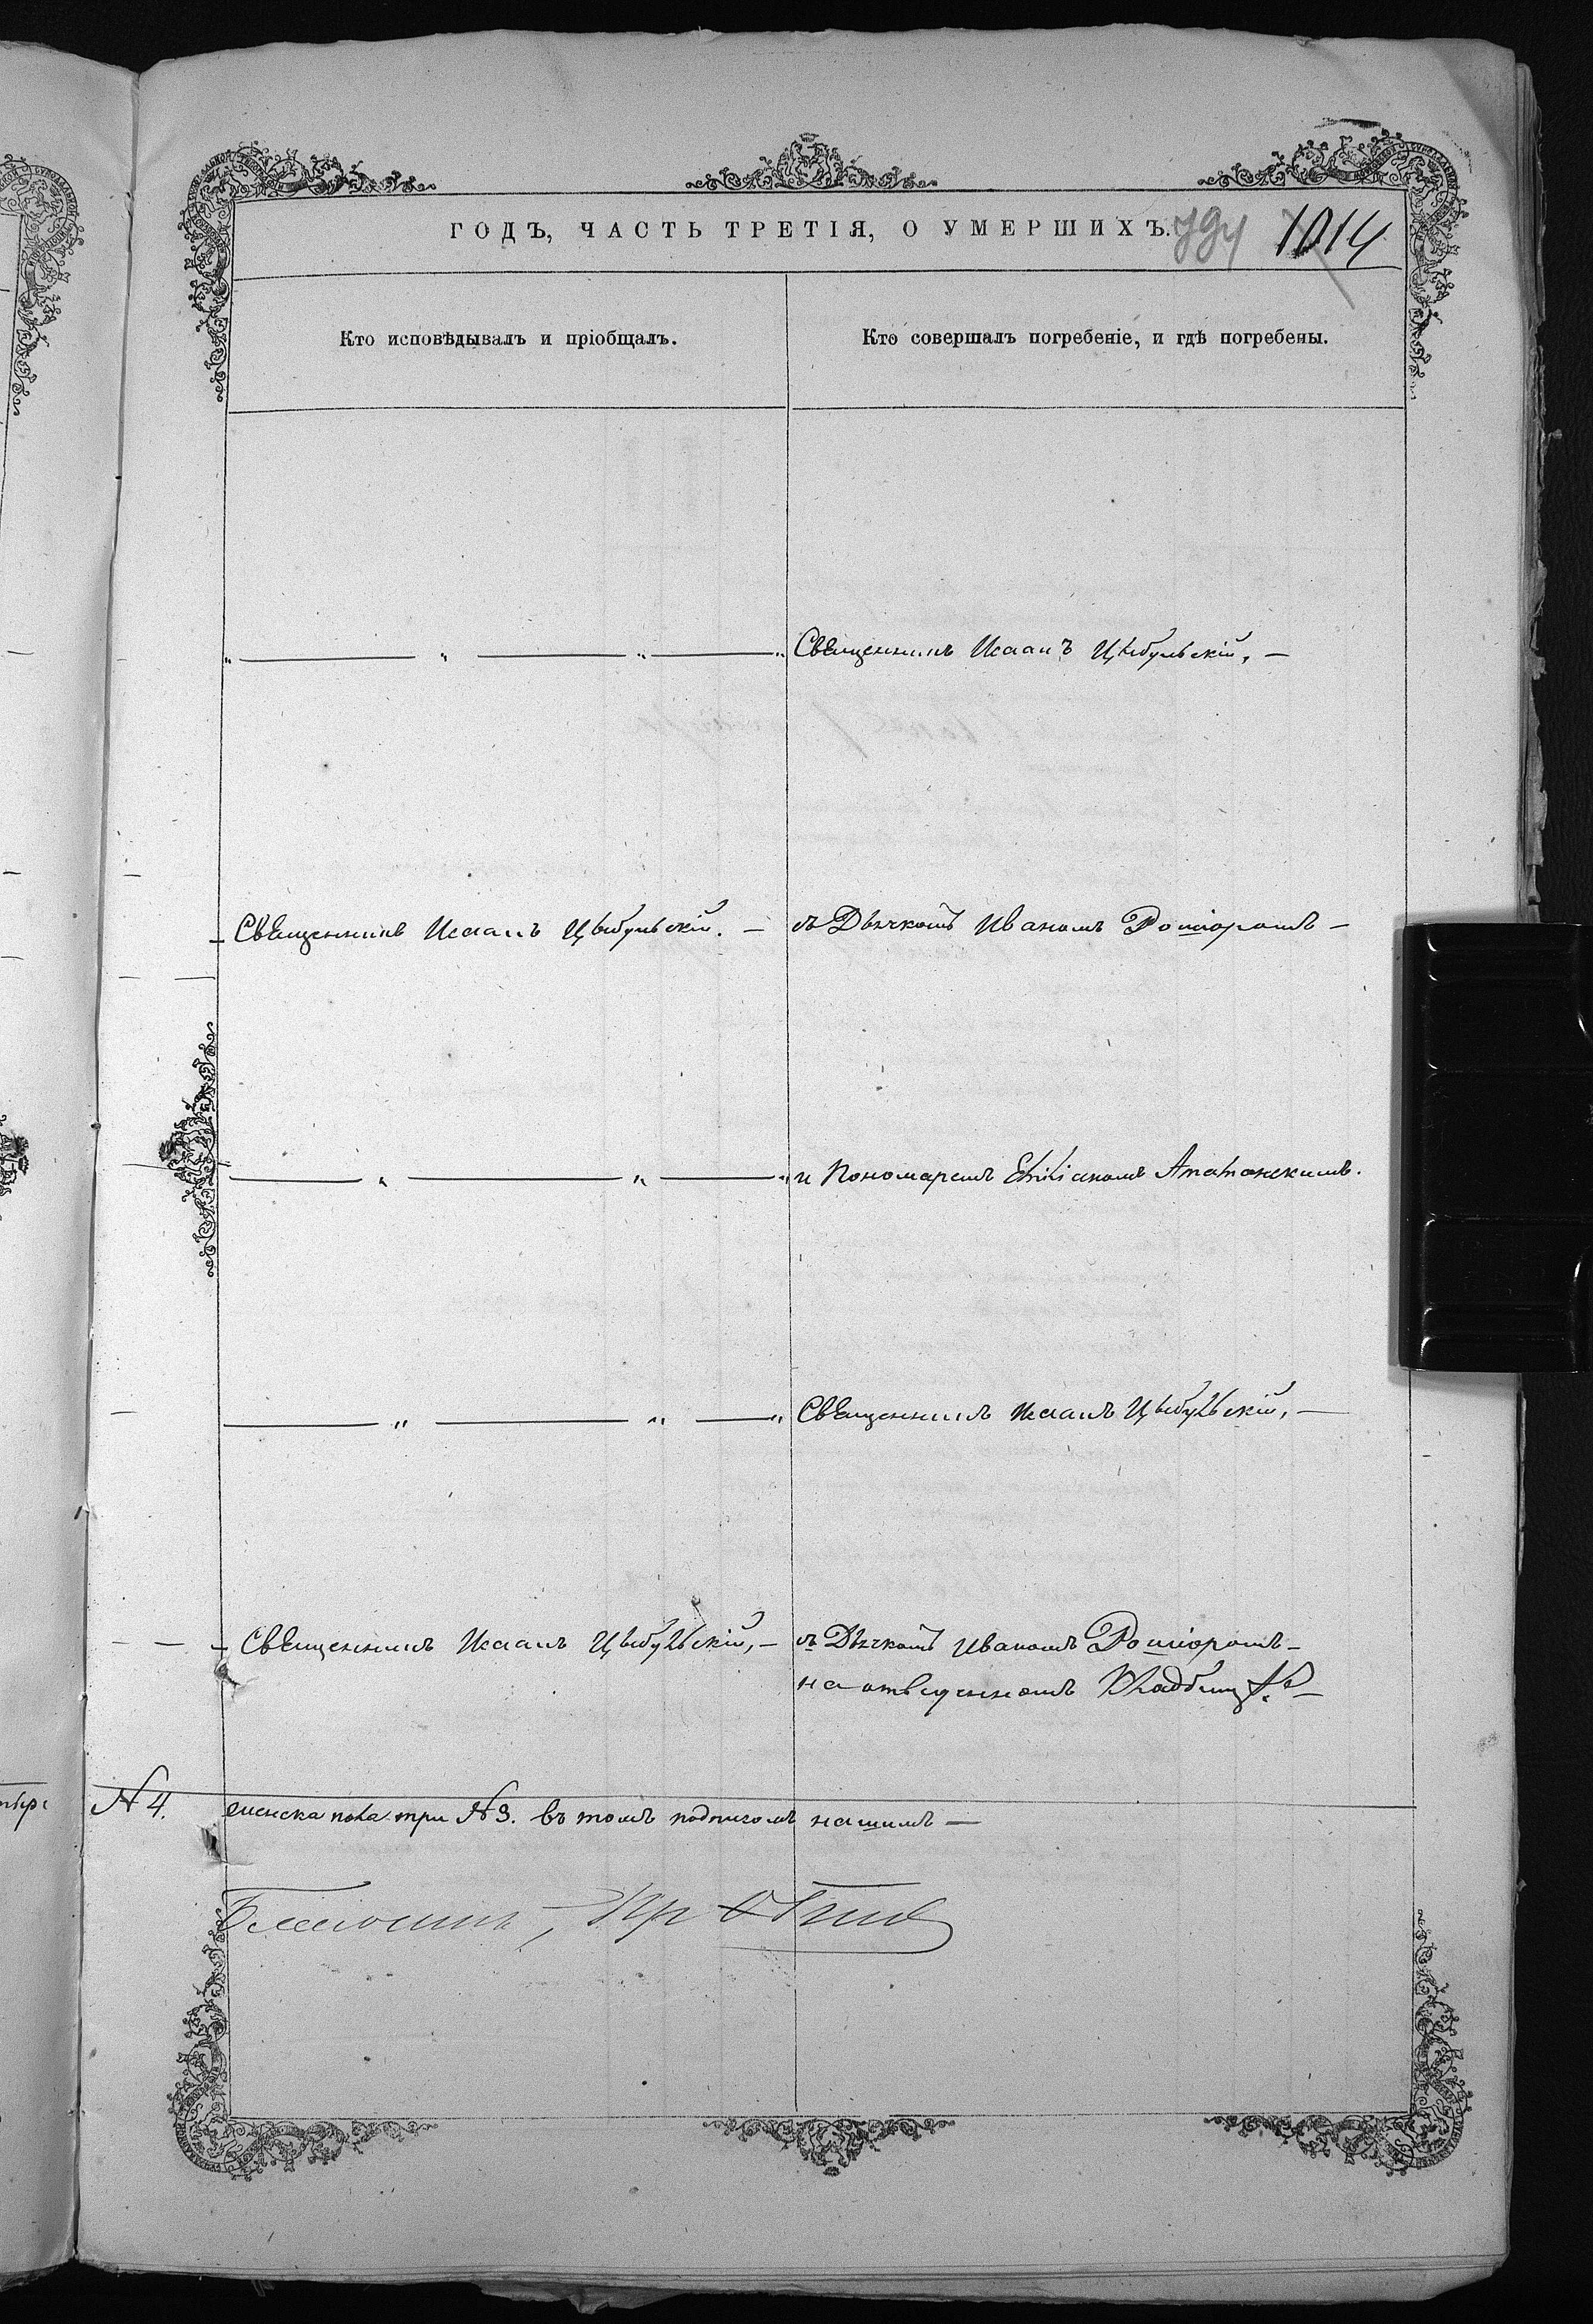 ГОДЪ, ЧАСТЬ ТРЕТІЯ, О УМЕРШИХЪ. 794 1014
Кто исповѣдывалъ и пріобщалъ. Кто совершалъ погребеніе, и гдѣ погребены.
Священникъ Исаакъ Цыбульскій, —
Священникъ Исаакъ Цыбульскій. — съ Дьячкомъ Иваномъ —
и Пономаремъ
Священникъ Исаакъ Цыбульскій, —
Священникъ Исаакъ Цыбульскій, — съ Дьячкомъ Иваномъ —
на отведенномъ
№ 4. женска пола три № 3. въ томъ подписомъ нашимъ —